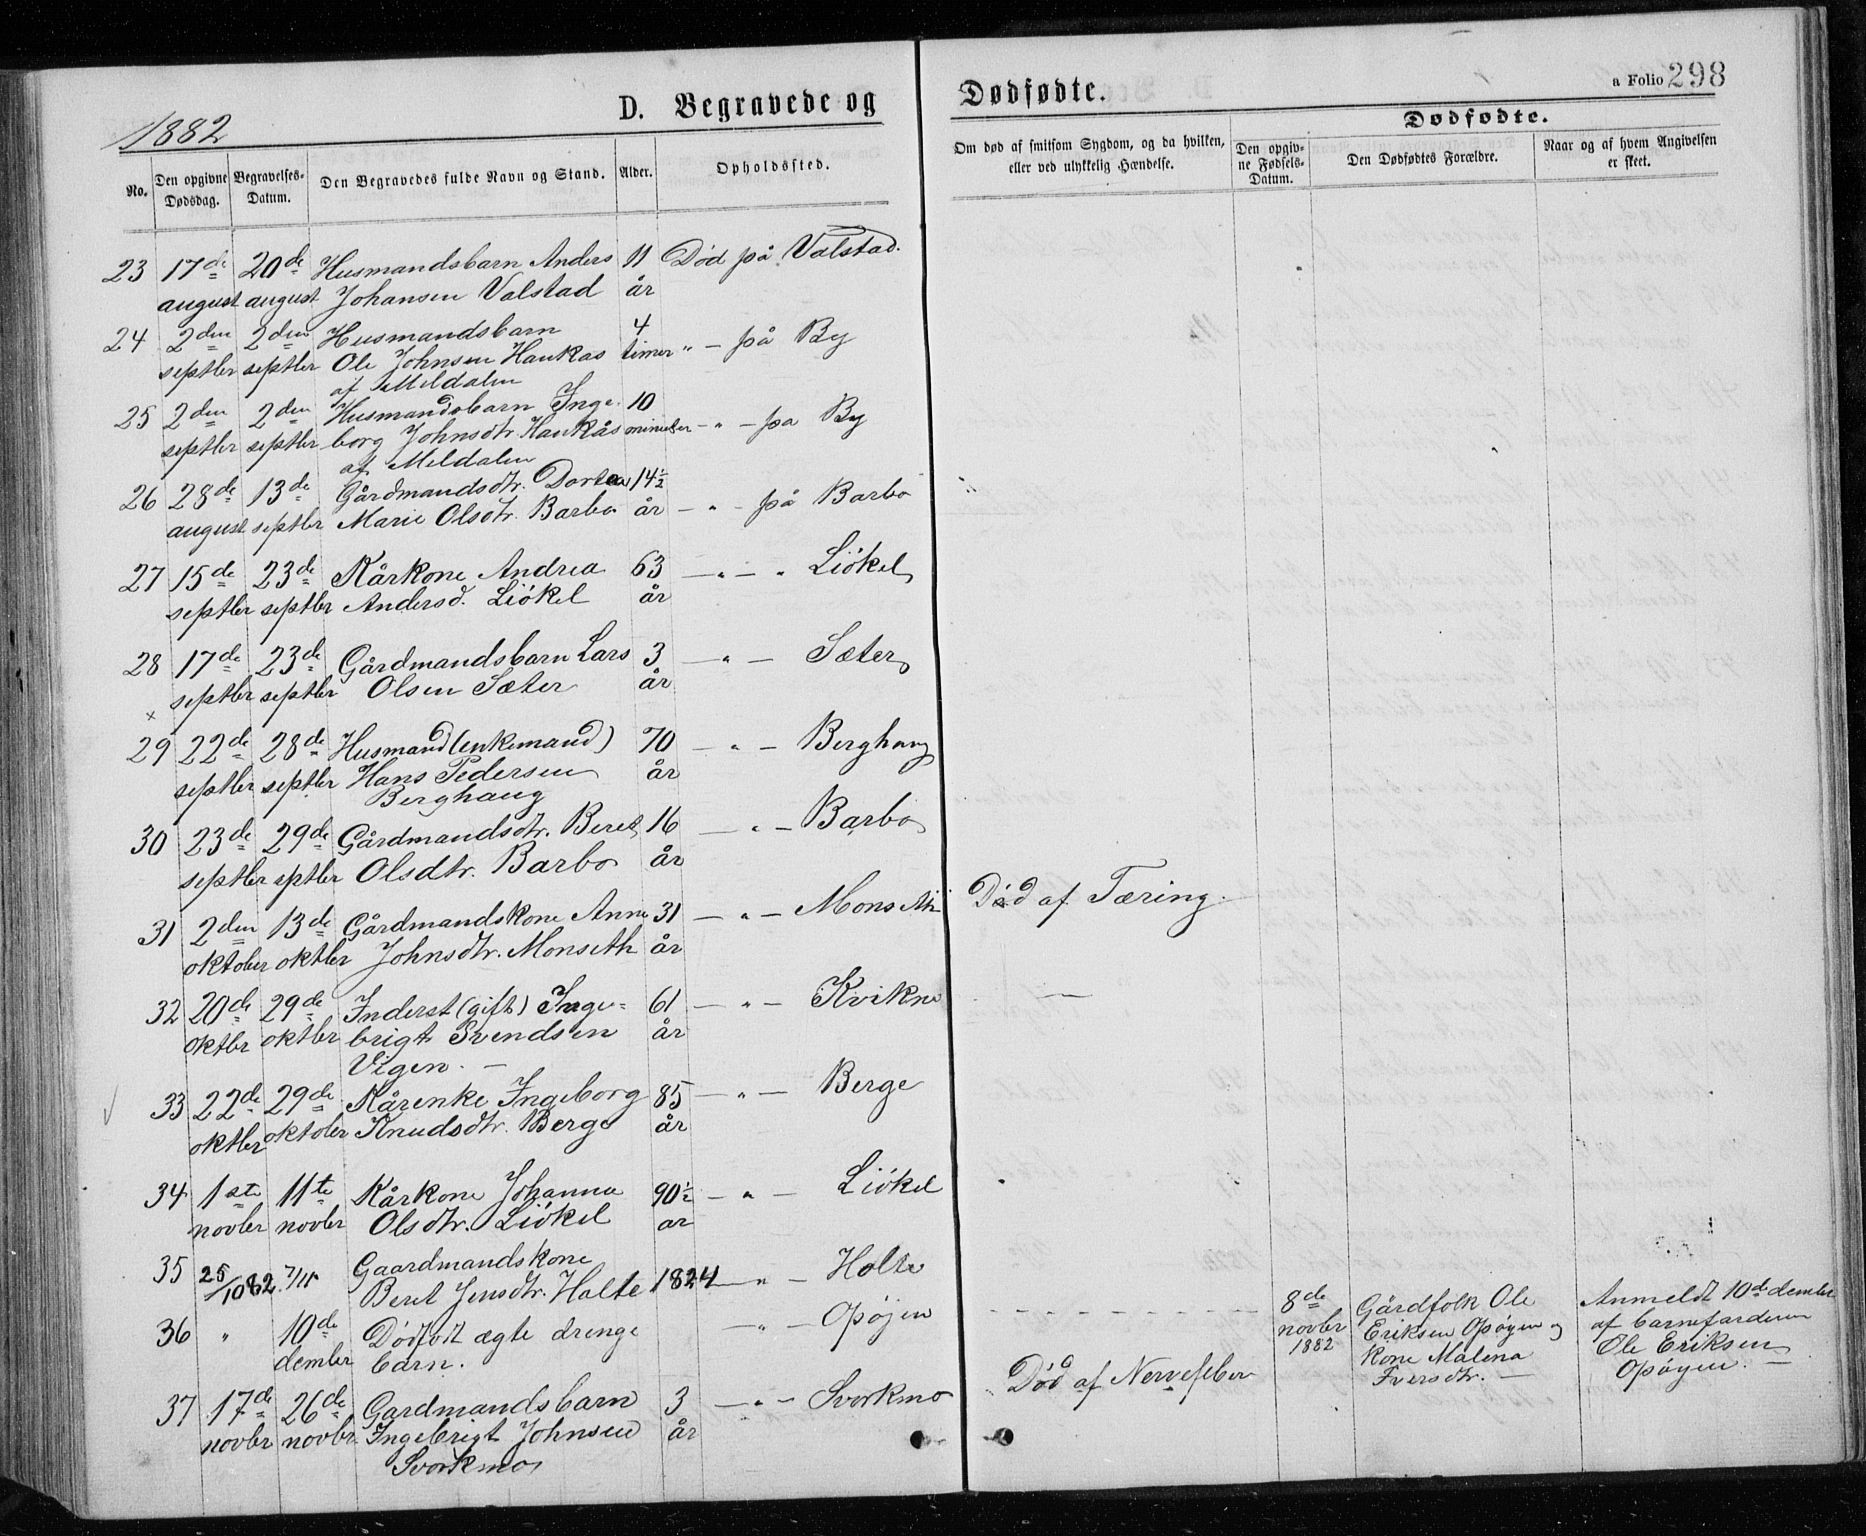 1882
D. Begravede og Dødfødte.
a Folio 298
No. Den opgivne Dødsdag. Begravelses-Datum. Den Begravedes fulde Navn og Stand. Alder. Opholdssted. Om død af smitsom Sygdom, og da hvilken, eller ved ulykkelig Hændelse.
Dødfødte.
Den opgivne Fødsels-Datum. Den Dødfødtes Forældre. Naar og af hvem Angivelsen er skeet.
23 17de 20de Husmandsbarn Anders 11 Død på Valstad.
august august Johansen Valstad år
24 2den 2den Husmandsbarn 4
septbr septbr Ole Johnsen Haukås timer " – på By
af Meldalen
25 2den 2den Husmandsbarn Inge- 10
septbr septbr borg Johnsdtr. Haukås minuter – " – på By
af Meldalen
26 28de 13de Gårdmandsdtr. Dortea 14½
august septbr Marie Olsdtr. Barbo år – " – på Barbo
27 15de 23de Kårkone Andrea 63 – " – " Liökel
septbr septbr Andersd. Liökel år
28 17de 23de Gårdmandsbarn Lars 3 – " – Sæter
septbr septbr Olsen Sæter år
×
29 22de 28de Husmand (enkemand) 70 – " – Berghaug
septbr septbr Hans Pedersen år
Berghaug
30 23de 29de Gårdmandsdtr. Beret 16 – " – Barbo
septbr sptbr Olsdtr. Barbo år
31 2den 13de Gårdmandskone Anne 31 – " – Monseth Död af Tæring.
oktober oktber Johnsdtr. Monseth år
32 20de 29de Inderst (gift) Inge- 61 – " – Kvikne —
oktbr oktber brigt Svendsen år
Vigen. –
33 22de 29de Kårenke Ingeborg 85 – " – Berge
oktber oktober Knudsdtr. Berge år
34 1ste 11te Kårkone Johanna 90½ – " – Liökel
novbr novbr Olsdtr. Liökel ar
35 25/10 82. 7/11 Gaardmandskone
Beret Jensdtr. Holte 1824 – " – Holte
36 " 10de Dödfödt ægte drenge – " – Opöjen
dember barn.
8de novbr 1882
Gårdfolk Ole
Eriksen Opöyen og
kone Malena
Iversdtr. –
Anmeldt 10de dember
af barnefarderen
Ole Eriksen
Opöyen. –
37 17de 26de Gardmandsbarn 3 – " – Svorkmo Död af Nervefeber
novbr novbr. Ingebrigt Johnsen år
Svorkmo